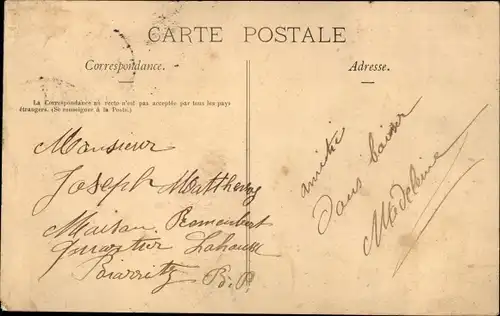 CARTE POSTALE
Correspondance.
Adresse.
La Correspondance au recto n'est pas acceptée par tous les pays
étrangers. (Se renseigner à la Poste.)
Monsieur
Joseph
Maison
quartier Lahouze
Biarritz B. P.
amitié
baiser
Madeleine